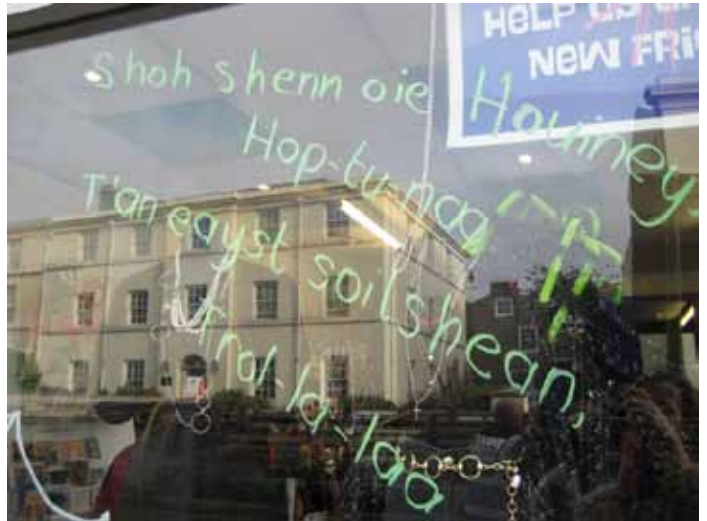 HELP US
NEW FRI
Shoh shenn oie Houney,
Hop-tu-naa,
T'an eayst soilshean,
Trol-la-laa